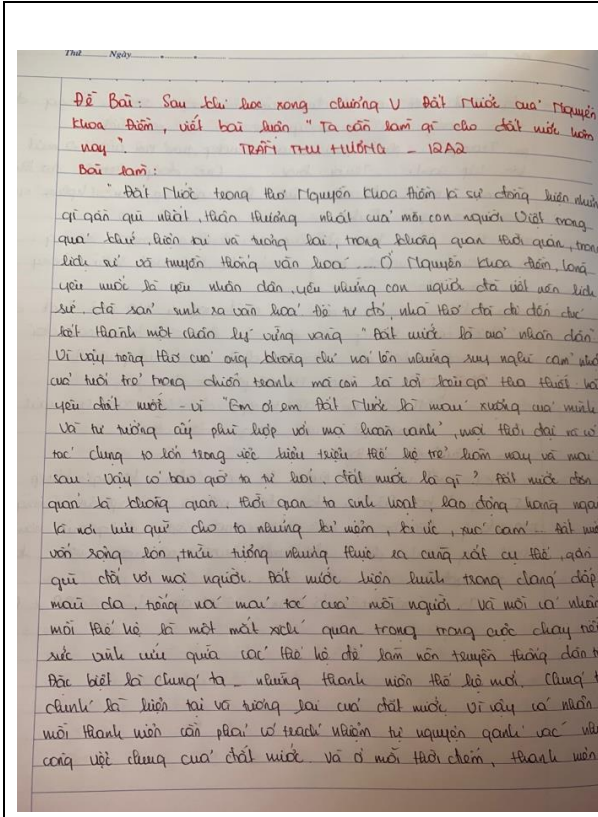 Thứ Ngày
Đề Bài: Sau khi học xong chương V Đất Nước của Nguyễn
Khoa Điềm, viết bài luận "Ta cần làm gì cho đất nước hôm
nay". TRẦN THU HƯỜNG - 12A2
Bài làm:
"Đất Nước trong thơ Nguyễn Khoa Điềm là sự dong hiến những
gì gần gũi nhất, thân thương nhất của mỗi con người Việt trong
quá khứ, hiện tại và tương lai, trong không quan thời quan, trong
lịch sử và truyền thống văn hoá.... Ở Nguyễn Khoa Điềm, lòng
yêu nước là yêu nhân dân, yêu những con người đã viết nên lịch
sử, đã sản sinh ra văn hoá. Để từ đó, nhà thơ đã đi đến đúc
kết thành một chân lý vững vàng "Đất nước là của nhân dân
Vì vậy trong thơ của ông không chỉ nói lên những suy nghĩ cảm nhận
của tuổi trẻ trong chiến tranh mà còn là lời kêu gọi tha thiết
yêu đất nước - vì "Em ơi em Đất Nước là máu xương của mình
Và tư tưởng ấy phù hợp với mọi hoàn cảnh", mọi thời đại và có
tác dụng to lớn trong việc hiệu triệu thế hệ trẻ hôm nay và mai
sau. Vậy có bao giờ ta tự hỏi, đất nước là gì? Đất nước đơn
quản là không quan, thời quan ta sinh hoạt, lao động hàng ngày
là nơi lưu giữ cho ta những kỉ niệm, kí ức, xúc cảm... Đất nước
vốn rộng lớn, trừu tượng nhưng thực ra cũng rất cụ thể, gần
gũi đối với mọi người. Đất nước hiện hình trong dáng dấp
màu da, tiếng nói mái tóc của mỗi người. Và mỗi cá nhân
mỗi thế hệ là một mắt xích quan trọng trong cuộc chạy tiếp
sức vĩnh cửu giữa các thế hệ để làm nên truyền thống dân tộc
Đặc biệt là chúng ta - những thanh niên thế hệ mới. Chúng ta
chính là hiện tại và tương lai của đất nước. Vì vậy cá nhân
mỗi thanh niên cần phải có trách nhiệm tự nguyện gánh vác
công việc chung của đất nước. Và ở mỗi thời điểm, thanh niên